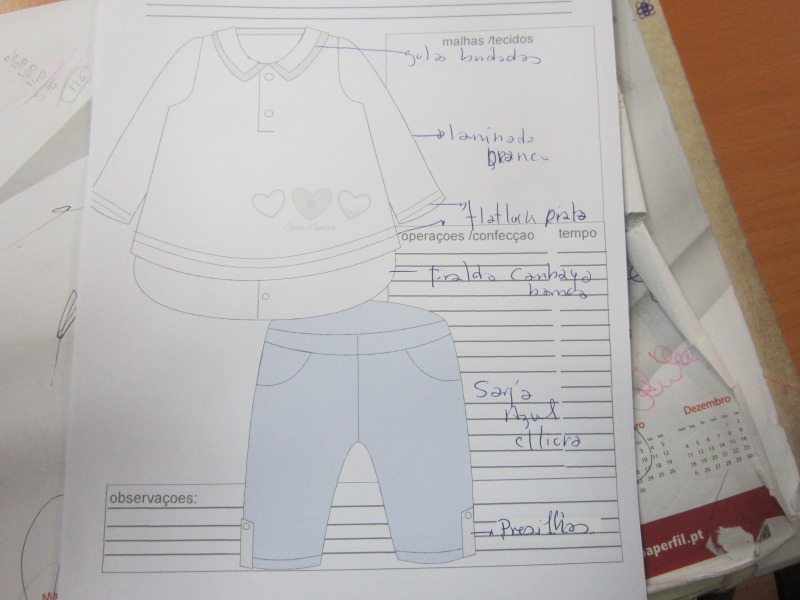 malhas /tecidos
golas bordadas
laminado
branco
Flatlock prata
operaçoes /confecçao tempo
Fralda Cambraia
branca
Sarja
Azul
c/licra
observaçoes:
Presilhas
Dezembro
aperfil.pt